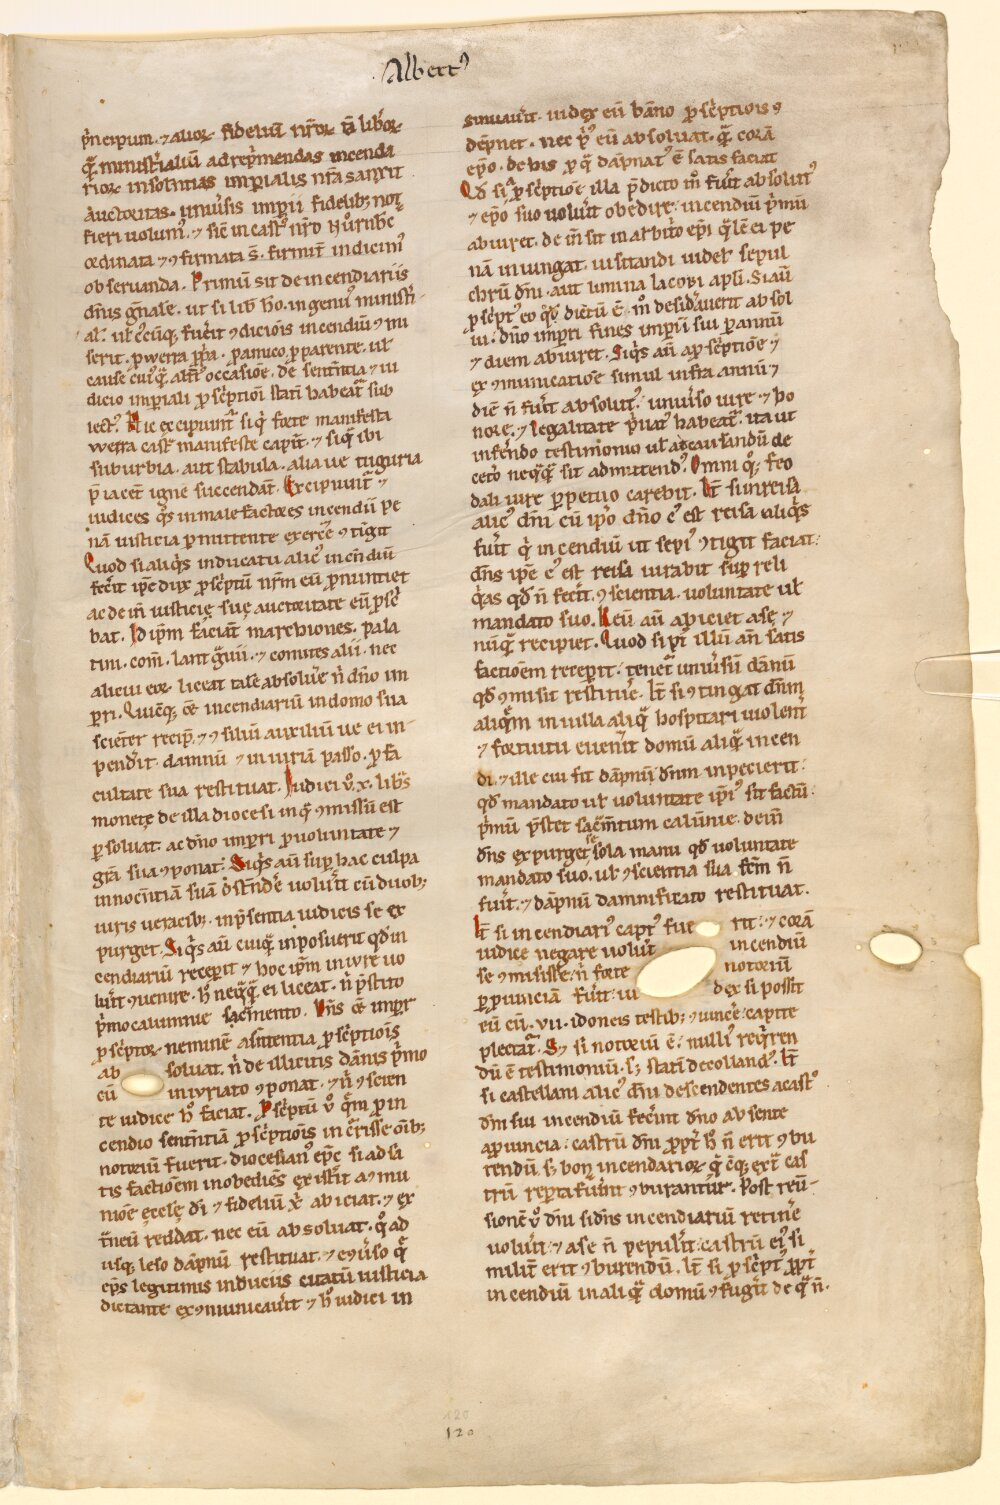 Albertꝰ
p̄ncipum. ⁊ alioꝝ fidelium nr̄oꝝ tā lib̾oꝝ
q̄ ministialiū ad rep̄mendas incenda
rioꝝ insolentias imp̄ialis nr̄a sanxit
auctoritas. uniu̾sis imperii fidelibꝫ not̄
fieri volumꝰ. ⁊ sic̄ in castꝰ nr̄o Nůrnb̾c
ordinata ⁊ ꝯfirmata s̄. firmit̾ in dicimꝰ
obseruanda. Primum sit de incendiariis
dn̄is gn̄ale. ut si lib̾ ho. ingenuꝰ ministi
al̾. ul̾ cꝰcūqꝫ fuerit ꝯdicionis incendiū ꝯmi
serit. ꝓ werra ꝓp̄a. ꝓ amico ꝓ parente. ul̾
cause cuiꝰq̄ alt̾iꝰ occasione. de sentn̄tia ⁊ iu
dicio imperiali ꝓscriptioni statī habeat̾ sub
iectꝰ. Hic excipiunt̾ si q̄ forte manifesta
werra cast̾ manifeste capiūt. ⁊ si q̄ ibi
suburbia. aut stabula. alia ue tuguria
p̄iacent igne succendāt. Excipiunt̾ ⁊
iudices q̄s in malefactores incendiū pe
nā iusticia ꝑmittente exercere ꝯtigit
Quod si aliq̄s in ducatu aliciꝰ incendiū
fecerit ip̄e dux ꝓscriptū nr̄m eū ꝓnuntiet
ac dein̄ iusticie sue auctoritate eū ꝓscri
bat. Id ip̄m faciāt marchiones. pala
tini. com̄. lantgᵃuii. ⁊ comites alii. nec
alicui eoꝝ liceat tale absoluere ni dn̄o im
pri. Quicūqꝫ aut̄ incendiariū in domo sua
scient̾ recip̄. ⁊ ꝯsiliū auxiliū ue ei im
pendit. damnū ⁊ iniuriā passo. ꝓ fa
cultate sua restituat. Iudici v̊. x. libras
monete de illa diocesi in q̄ ꝯmissū est
ꝑsoluat. ac dn̄o impri ꝓ uoluntate ⁊
gr̄a sua ꝯponat. Siq̄s aū sup̄ hac culpa
innocentiā suā ostendere uoluit cū duobꝫ
iuris ueracibꝫ. in p̄sentia iudicis se ex
purget. Siq̄s aū cuiq̄ inposuerit qd̾ in
cendiariū recepit ⁊ hoc ip̄m in iure uo
luerit ꝯuenire. h̊ neq̄q̄ ei liceat. ni p̄stito
p̄mo calumnie sacramento. Dn̄s aūt impr̄
ꝓscriptoꝝ neminē a sententia ꝓscriptionis
ab soluat. ni de illicitis dānis p̄mo
cū iniuriato ꝯponat. ⁊ ni ꝯscien
te iudice h̊ faciat. Proscriptū v̊ quē ꝓ in
cendio sententiā ꝓscriptionis incurisse oīb;
notoriū fuerit. diocesianꝰ epc̄ si ad sa
tis factioem inobediēs extitit a ꝯmu
nioe ecclē di ⁊ fideliū x̄ abiciat. ⁊ ex
traneū reddat. nec eū absoluat. q̊ ad
usqꝫ leso dāpnū restituat. ⁊ eꝯuerso q̄
epc̄s legitimis induciis citatū iusticia
dictante exꝯmunicauit ⁊ h̊ iudici in
sinuauit. iudex eū banno ꝓscriptionis ꝯ
dempnet. nec pᵉus eū absoluat. q̄ corā
epō. de his ꝓ q̄ dāpnatꝰ ē satis faciat
Qd̾ si a ꝓscriptione illa p̄dicto m̊ fuit absolutꝰ
⁊ epō suo uoluit obedire. incendiū p̄mū
abiuret. de in̄ sit in arbitrio epi q̄lē ei pe
nā iniungat. uisitandi uidel̾ sepul
chrū dn̄i. aut limina Iacobi apl̄i. Si aū
ꝓscriptꝰ eo quo dictū ē. m̊ desiderauerit absol
ui. dn̄o impri fines imperii sui ꝑ annū
⁊ diem abiuret. Siq̄s aū a ꝓscriptione ⁊
exꝯmunicatione simul infra annū ⁊
diē n̄ fuit absolutꝰ. uniuerso iure. ⁊ ho
nore. ⁊ legalitate p̄uatꝰ habeat̾. ita ut
in ferendo testimonio ul̾ ad causandū de
cetō neq̄q̄ sit admittendꝰ. Omni qꝫ feo
dali iure ꝑpetuo carebit. It̄ si in reisa
aliciꝰ dn̄i cū ip̄o dn̄o cꝰ est reisa aliq̄s
fuit q̄ incendiū ut sepiꝰ ꝯtigit faciat.
dn̄s ip̄e cꝰ est reisa iurabit sup̄ reli
q̄as qd̾ n̄ fecit. ꝯscientia. uoluntate ul̾
mandato suo. Reū aū abiciet a se. ⁊
nūq̄ recipiet. Quod si pᵒst illū an̄ satis
factioem recepit. tenet̾ uniuersū dānū
qd̾ ꝯmisit restituere. It̄ si ꝯtingat dn̄m
aliquē in uilla aliq̄ hospitari uiolent̾
⁊ fortuitu euenerit domū aliq̄ incen
di. ⁊ ille cui fit dāpnū dn̄m inpecierit.
qd̾ mandato ul̾ uoluntate ip̄iꝰ sit factū.
p̄mū p̄stet sacramentum calūnie. dein̄
dn̄s expurget se sola manu qd̾ uoluntate
mandato suo. ul̾ ꝯscientia sua fcm̄ n̄
fuit. ⁊ dāpnū damnificato restituat.
It̄ si incendiariꝰ captꝰ fue rit. ⁊ corā
iudice negare uoluit incendiū
se ꝯmisisse. n̄ forte notoriū
ꝑ ꝓuinciā fuerit. iu dex si possit
eū cū. vii. idoneis testib; ꝯuincere. capite
plectat̾. Si ⁊ si notoriū ē. nulliꝰ requiren
dū ē testimoniū. sꝫ statī decollandꝰ. It̄
si castellani aliciꝰ dn̄i descendentes a castꝰ
dn̄i sui incendiū fecerint dn̄o absente
a ꝓuincia. castrū dn̄i ꝓpt̾ h̊ n̄ erit ꝯbu
rendū sꝫ bona incendarioꝝ q̄cūqꝫ ext̾ cas
trū reperta fuerint ꝯburantur. Post reu̾
sionē v̊ dn̄i si dn̄s incendiariū retinere
uoluit. ⁊ a se n̄ pepulit. castrū eiꝰ si
milit̾ erit ꝯburendū. It̄ si ꝓscriptꝰ ꝓpt̾
incendiū in aliquā domū ꝯfugit de qᵃ n̄.
120
120